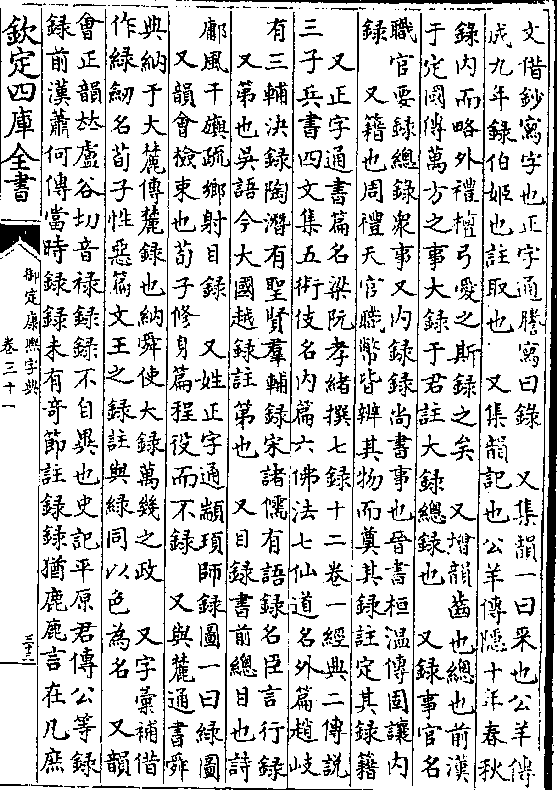 文借鈔寫字也正字通謄寫曰錄　又集韻一曰采也公羊傳
成九年録伯姬也註取也　又集韻記也公羊傳隱十年春秋
錄内而略外禮檀弓愛之斯録之矣　又增韻齒也總也前漢
于定國傳萬方之事大録于君註大録總録也　又録事官名
職官要録總録衆事又内録録尚書事也晉書桓温傳固讓内
録　又籍也周禮天官職幣皆辨其物而奠其録註定其録籍
　又正字通書篇名梁阮孝緒撰七録十二卷一經典二傳說
三子兵書四文集五術伎名内篇六佛法七仙道名外篇趙岐
有三輔決録陶潛有聖賢羣輔録宋諸儒有語録名臣言行録
　又第也吳語今大國越録註第也　又目録書前總目也詩
鄘風干旟疏鄉射目録　又姓正字通顓頊師録圖一曰緑圖
　又韻會檢束也荀子修身篇程役而不録　又與麓通書舜
典納于大麓傳麓録也納舜使大録萬幾之政　又字彙補借
作緑劒名荀子性惡篇文王之録註與緑同以色為名　又韻
會正韻𠀤盧谷切音禄録録不自異也史記平原君傳公等録
録前漢蕭何傳當時録録未有奇節註録録猶鹿鹿言在凡庶
欽定四庫全書
御定康熙字典
卷三十一
三十二